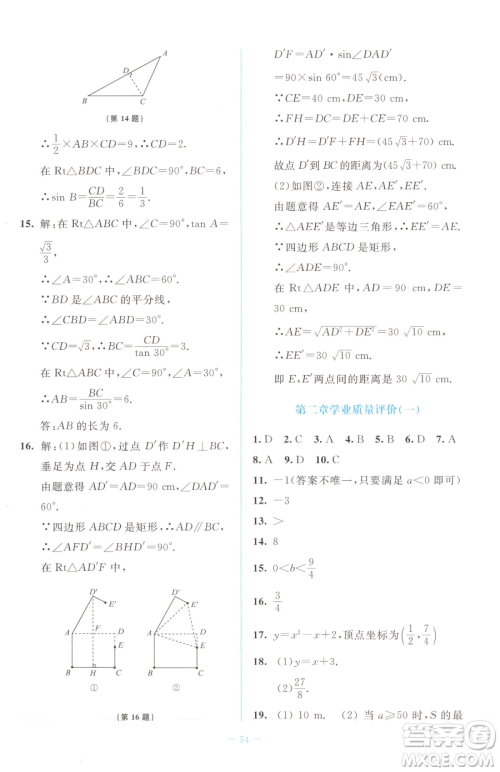 A
D
B
C
(第 14 题)
∴ 1/2 ×AB×CD=9√3.
∴CD=2.
在 Rt△BDC 中，∠BDC=90°,
∴sin B= CD/BC = 2/6 = 1/3.
15. 解：在 Rt△ABC 中，∠C=90°, tan A=
√3/3,
∴∠A=30°, ∴∠ABC=60°.
∵BD 是∠ABC 的平分线，
∴∠CBD=∠ABD=30°.
∵CD=√3, ∴BC= CD/tan 30° =3.
∴AB= BC/sin 30° =6.
答：AB 的长为 6.
16. 解：(1)如图①，过点 D′作 D′H⊥BC,
垂足为点 H，交 AD 于点 F.
由题意得 AD′=AD=90 cm，∠DAD′=
60°.
∵四边形 ABCD 是矩形，∴AD∥BC.
∴∠AFD′=∠BHD′=90°.
在 Rt△AD′F 中，
D′
E′
A
F
D
E
B
H
C
①
D′
E′
A
D
E
B
C
②
(第 16 题)
D′F=AD′·sin∠DAD′
=90×sin 60°=45√3(cm).
∵CE=40 cm，DE=30 cm,
∴FH=DC=DE+CE=70 cm.
∴D′H=D′F+FH=(45√3+70) cm.
故点 D′到 BC 的距离为(45√3+70) cm.
(2)如图②，连接 AE，AE′，EE′.
由题意得 AE′=AE，∠EAE′=60°.
∴△AEE′是等边三角形，∴EE′=AE.
∵四边形 ABCD 是矩形，
∴∠ADE=90°.
在 Rt△ADE 中，AD=90 cm，DE=
30 cm,
∴AE=√(AD²+DE²)=30√10(cm).
∴EE′=30√10 cm.
即 E，E′两点间的距离为 30√10 cm.
第二章学业质量评价(一)
1. D 2. C 3. A 4. C 5. D 6. B 7. A
8. A 9. D 10. C
11. －1(答案不唯一，只要满足 a<0 即可)
12. －3
13. >
14. 8
15. 0<b< 9/4
16. 3/4
17. y=x²－x+2，顶点坐标为(1/2, 7/4)
18. (1)y=－x²+x
(2) 27/8
19. (1)10 m. (2)当 a≥50 时，S 的最
54